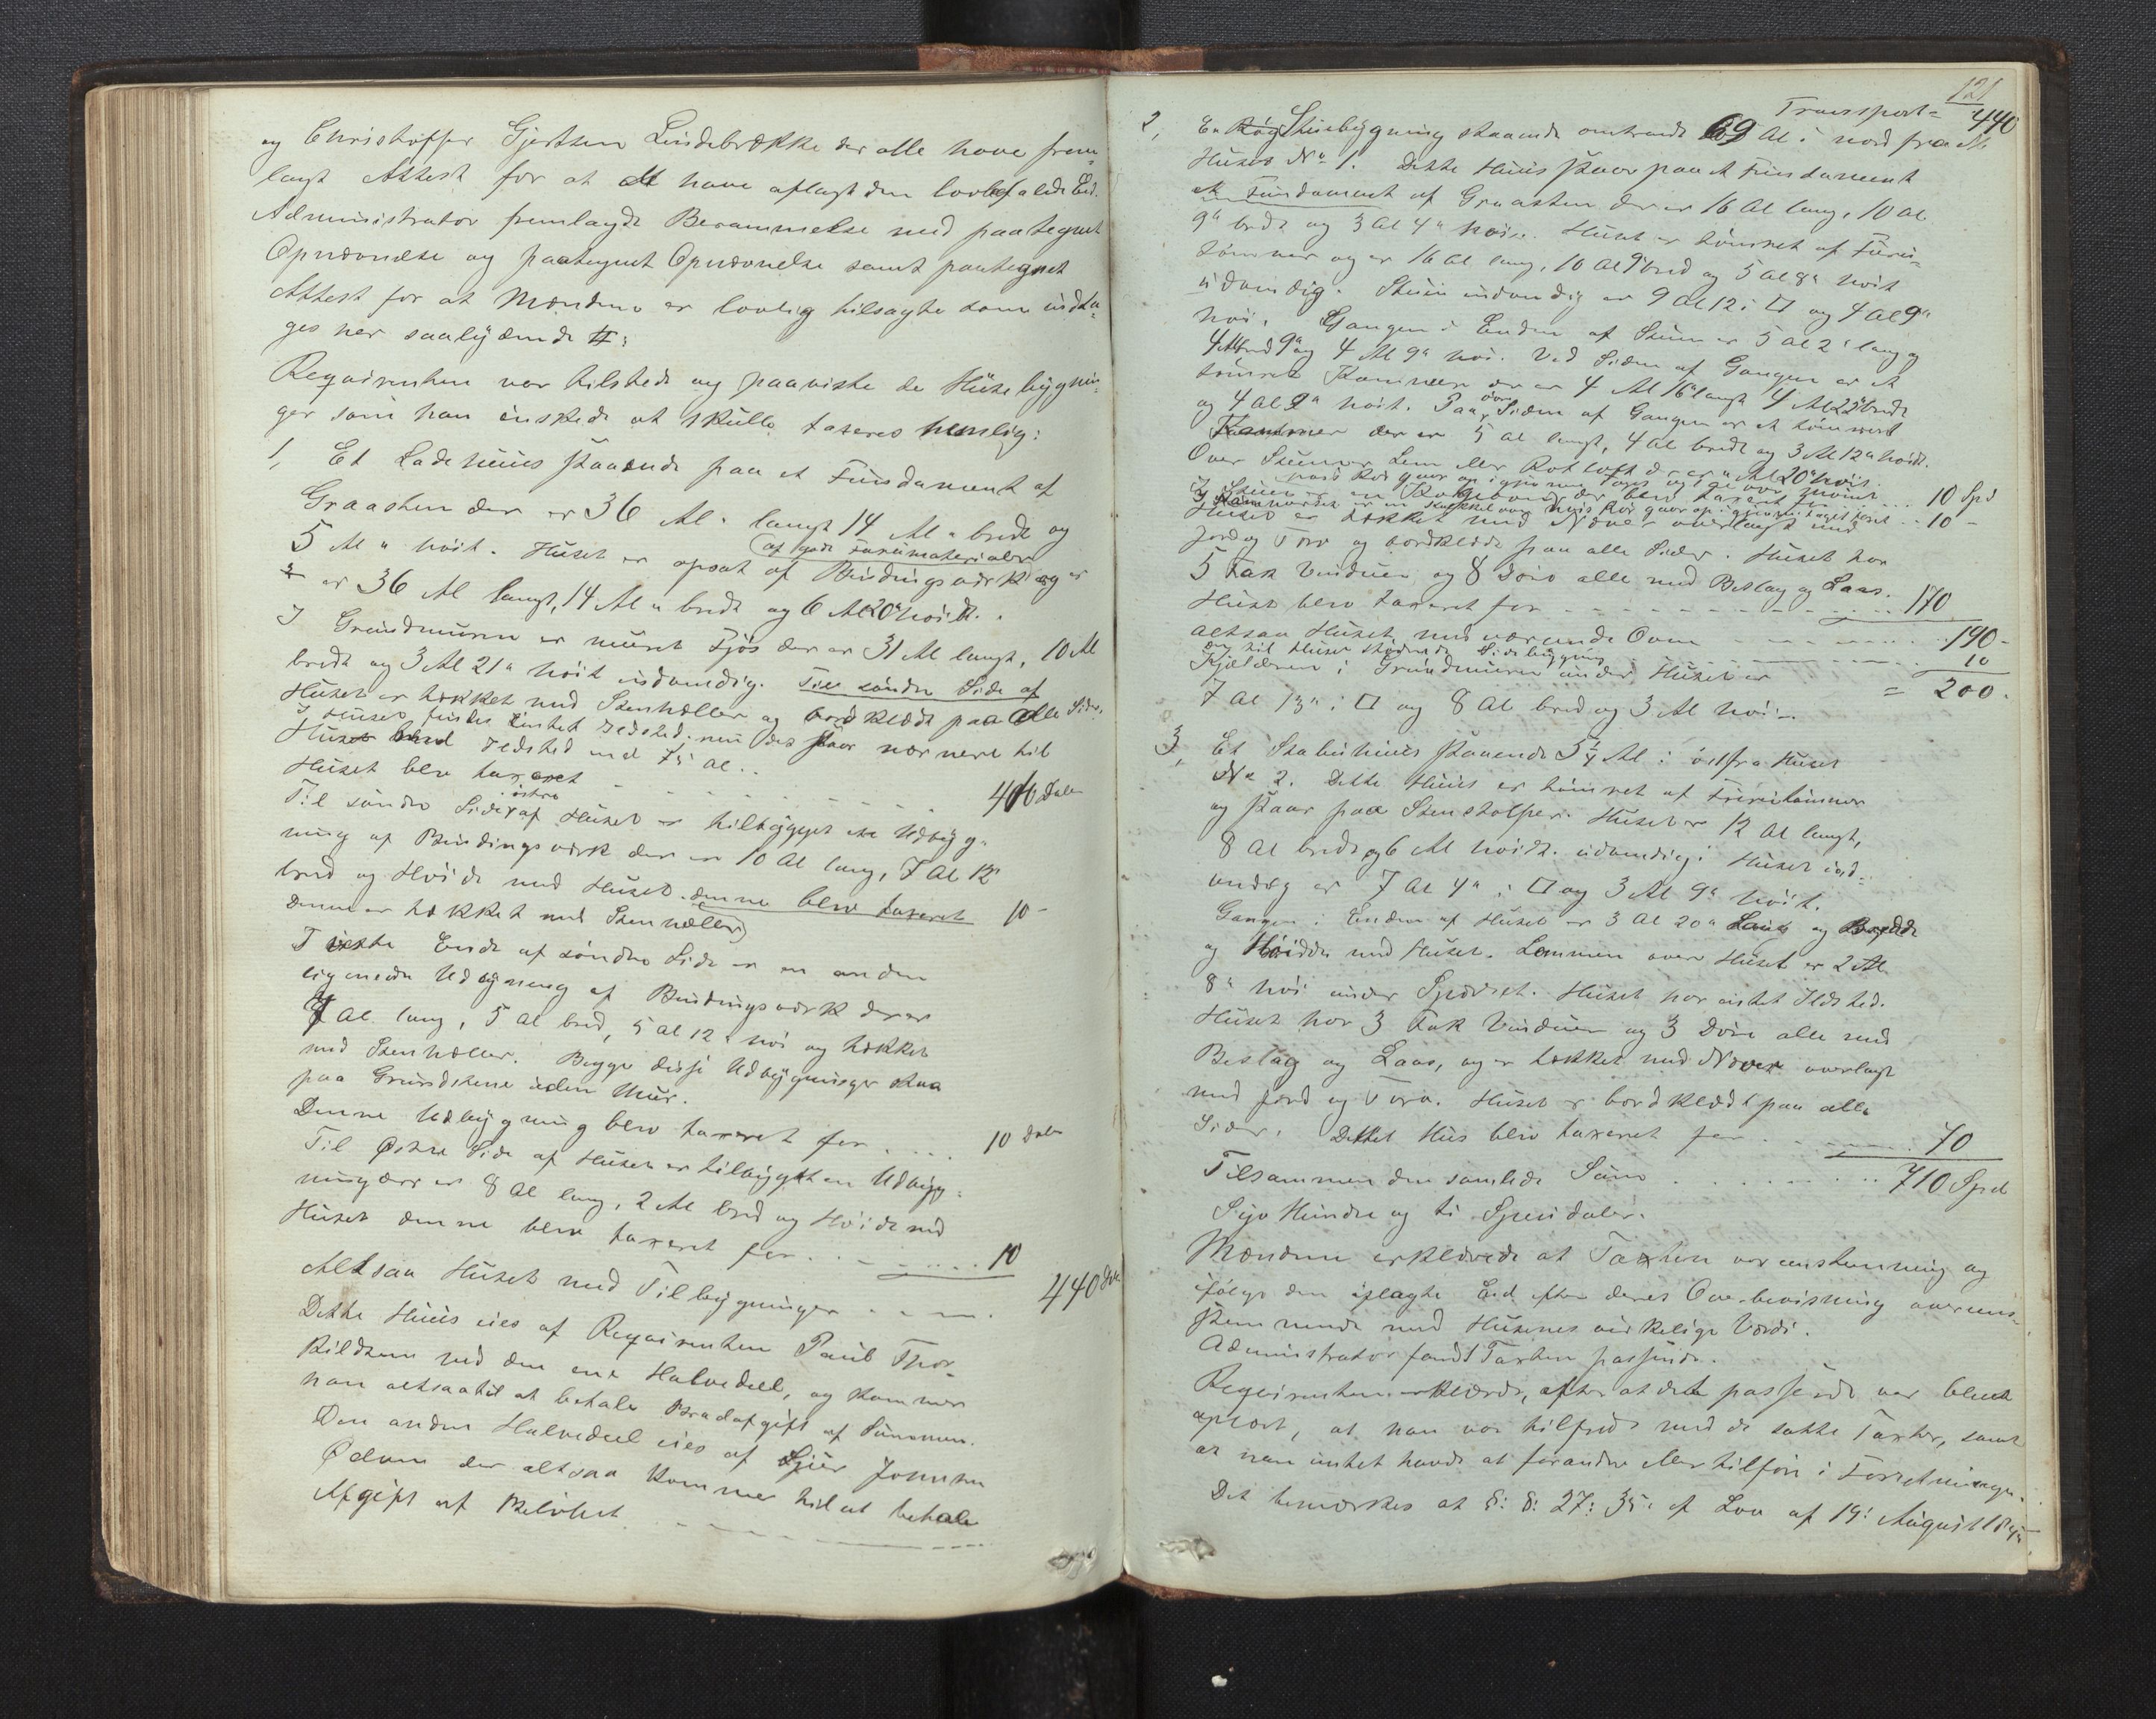 og Christoffer Gjertsen Lindebrække der alle have frem-
lagt Attest for at have aflagt den lovbefalede Eed.
Administrator fremlagde Berammelse med paategnet
Opnævnelse og paategnet Opnævnelse samt paategnet
Attest for at Mændene er lovlig tilsagte som indta-
ges her saalydende #:
Requirenten var tilstede og paaviste de Huse bygnin-
ger som han ønskede at skulle taxeres nemlig:
1, Et Ladehuus staaende paa et Fundament af
Graasten der er 36 Al. langt 14 Al " bredt og
5 Al " høit. Huset er opsat af Bindingsværk og er
af gode Furumaterialer
er 36 Al langt, 14 Al " bredt og 6 Al 20" høidt.
I Grundmuren er muret Fjøs der er 31 Al langt, 10 Al
bredt og 3 Al 21" høit indvendig. Til søndre Side af
Huset er tækket med Stenhæller og bordklædt paa alle Sider.
I Huset findes intet Ildsted. men des staar nærmere til
Huset Ildsted end 75 Al.
Huset blev taxeret - - - - - - - 400 Daler
Til søndre Side østre af Huset er tilbygget en Udbyg-
ning af Bindingsværk der er 10 Al lang, 7 Al 12"
bred og Høide med Huset. denne blev taxeret 10 -
Denne er tækket med Stenhæller
I vestre Ende af søndre Side er en anden
lignende Udbygning af Bindingsværk der er
7 Al lang, 5 Al bred, 5 Al 12" høi og tækket
med Stenhæller. Begge disse Udbygninger staa
paa Grundstene uden Muur.
Denne Udbygning blev taxeret for . . . . 10 Daler
Til Østre Side af Huset er tilbygget en Udbyg-
ning der er 8 Al lang, 2 Al bred og Høide med
Huset denne blev taxeret for . . - . . . . 10
Altsaa Huset med Tilbygninger - - - - . 440 Dlr.
Dette Huus eies af Requirenten Paul Thor-
kildsen ved den ene Halvedeel, og kommer
han altsaa til at betale Brandafgift af Summen.
Den anden Halvedeel eies af Johnsen
Ødven der altsaa kommer til at betale
Afgift af Beløbet - - - - - - -
121
Transport = 440
2, En Røg Stuebygning staaende omtrendt 69 Al i nord fra
Huset No 1. Dette Huus staar paa et Fundament
et Fundament af Graasten der er 16 Al lang, 10 Al
9" bredt og 3 Al 4" høi. Huset er tømret af Furu-
tømmer og er 16 Al lang, 10 Al 9" bred og 5 Al 8" høit
udvendig. Stuen indvendig er 9 Al 12 i □ og 4 Al 9"
høi. Gangen i Enden af Stuen er 5 Al 2" lang og
4 Al bred 9" og 4 Al 9" høi. Ved Siden af Gangen er et
tømret Kammer der er 4 Al 16" langt 4 Al 22" bredt
og 4 Al 9" høit. Paa øvre Siden af Gangen er et tømmeret
Kammer der er 5 Al langt, 4 Al bredt og 3 Al 12" høidt.
Over Stuen er Lem eller Rotloft der er " Al 20" høit.
I Stuen er en Kogeovn der blev taxeret for . . . . 10 Spd
I Kammerset er en Kakkelovn hvis Rør gaar op igjennem Taget taxeret . . 10 -
Huset er tækket med Næver overlagt med
Jord og Torv og bordklædt paa alle Sider. Huset har
5 Fak Vinduer og 8 Døre alle med Beslag og Laas.
Huset blev taxeret for - - - - - - - - - 170
altsaa Huset med værende Ovne - - - - - 190 -
og til Huset stødende Sidebygning - - - - - 10
Kjælderen i Grundmuren under Huset er = 200.
7 Al 13" i □ og 8 Al bred og 3 Al høi -.
3, Et Stabuhuus staaende 5¼ Al i øst fra Huset
No 2. Dette Huus er tømret af Furutømmer
og staar paa Stenstolper. Huset er 12 Al langt,
8 Al bredt og 6 Al høidt. udvendig: Huset ind-
vendig er 7 Al 4" i □ og 3 Al 9" høit.
Gangen i Enden af Huset er 3 Al 20" Lang og Bredde
og Høidde med Huset. Lemmen over Huset er 2 Al
8" høi under Sperret. Huset har intet Ildsted.
Huset har 3 Fak Vinduer og 3 Døre alle med
Beslag og Laas, og er tækket med Næver overlagt
med Jord og Torv. Huset er bordklædt paa alle
Sider. Dette Hus blev taxeret for . - - - - - 70
Tilsammen den samlede Sum . . . . . . . . . 710 Spd
Syv Hundre og ti Speciedaler.
Mændene erklærede at Taxten var enstemmig og
ifølge den aflagte Eed efter deres Overbevisning overens-
stemmende med Husenes virkelige Værdi.
Administrator fandt Taxten passende.
Requirenten erklærede, efter at dette passerede var blevet
oplæst, at han var tilfreds med de satte Taxter, samt
at han intet havde at forandre eller tilføie i Forretningen.
Det bemærkes at §: 8: 27: 35: af Lov af 19: August 1845